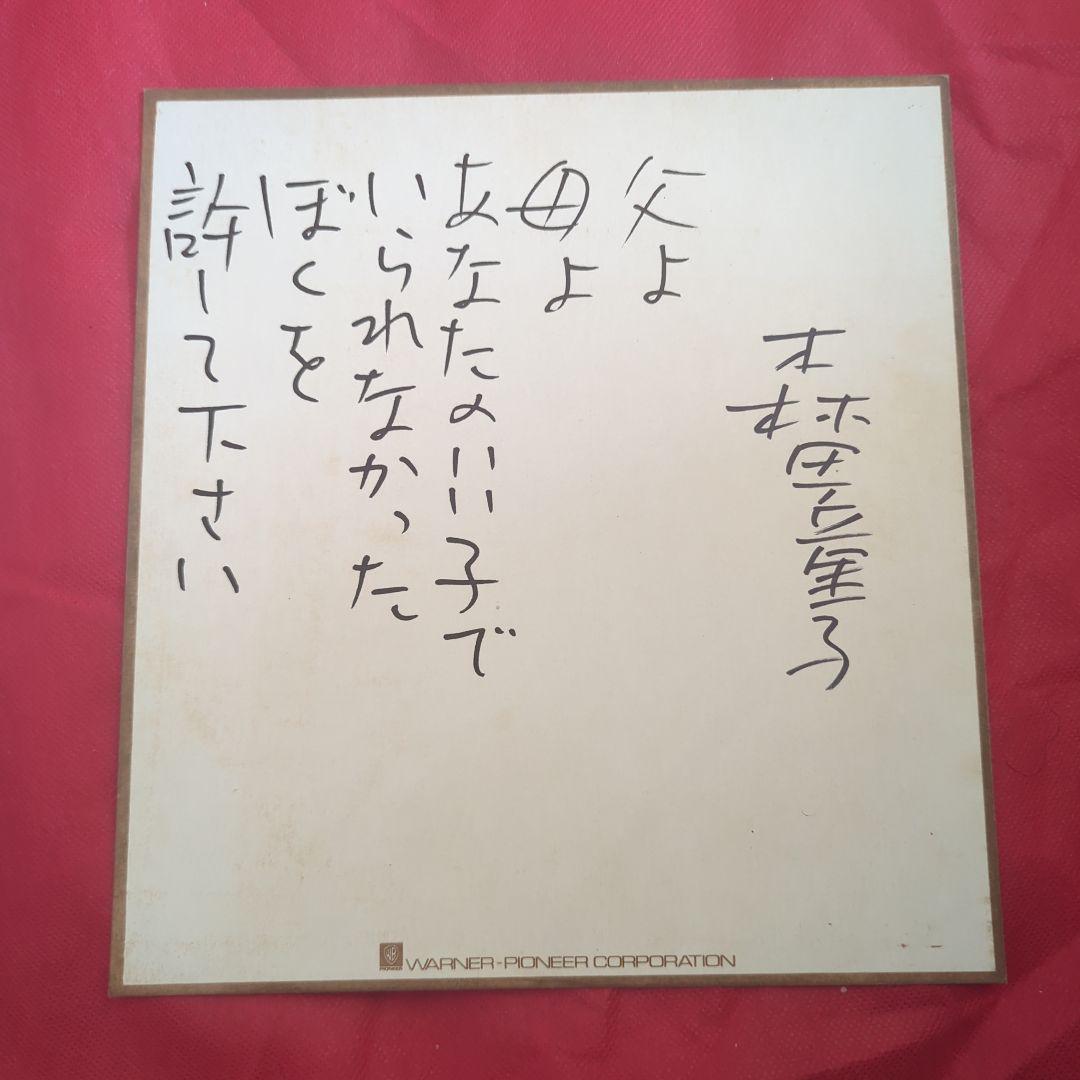 森田童子
父よ
母よ
あなたのいい子で
いられなかった
ぼくを
許して下さい
PIONEER
WARNER-PIONEER CORPORATION